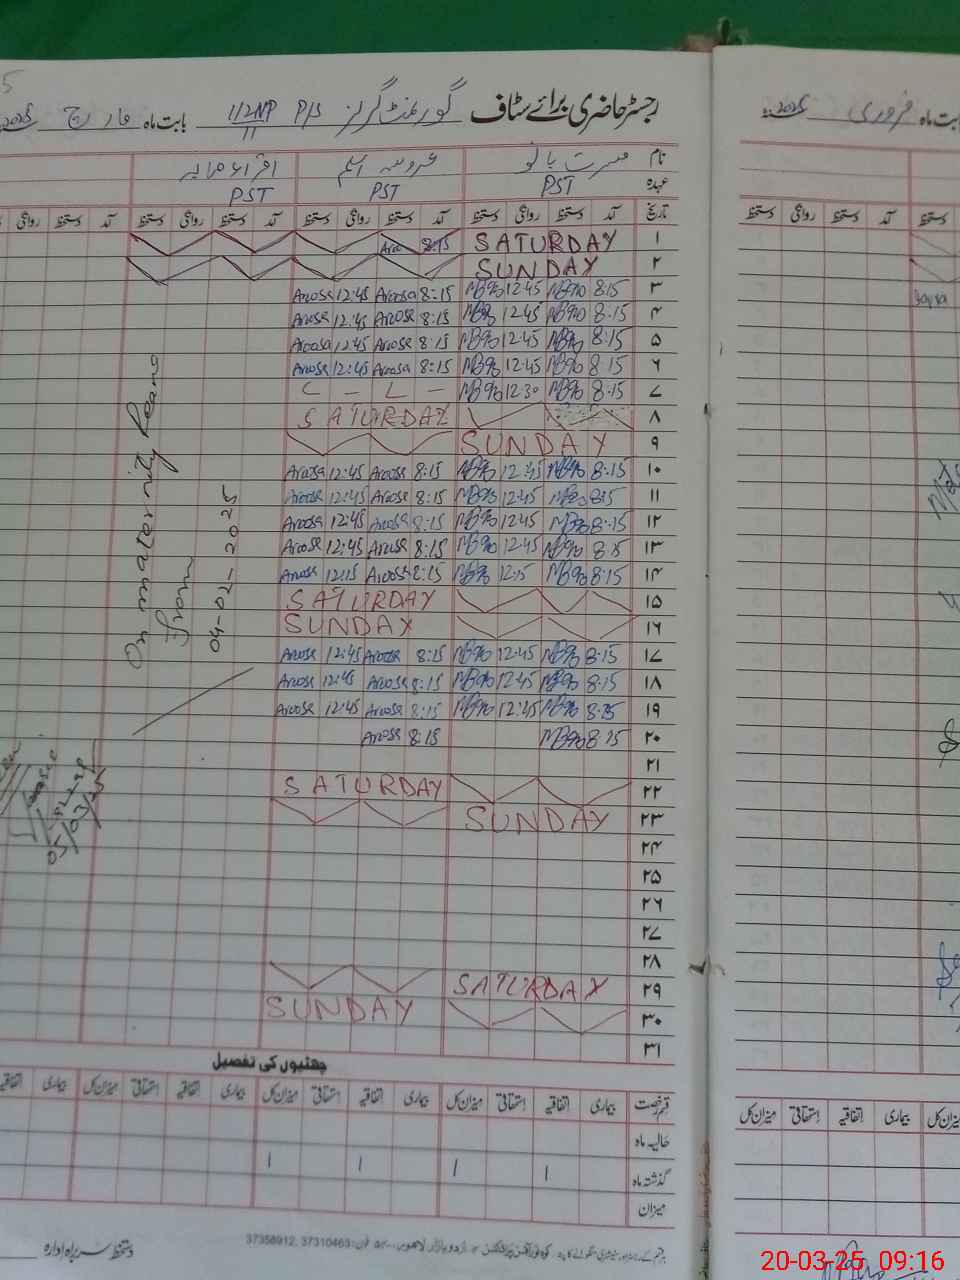 رجسٹر حاضری برائے سٹاف گورنمنٹ گرلز P/S 112NP بابت ماہ مارچ 2025
نام مسرت بانو عروسہ اسلم
عہدہ PST PST PST
تاریخ آمد دستخط روانگی دستخط آمد دستخط روانگی دستخط آمد دستخط روانگی دستخط آمد
۱ SATURDAY 8:15
۲ SUNDAY
۳ 8:15 12:45 8:15 Aroosa 12:45 Aroosa
۴ 8:15 12:45 8:15 Aroosa 12:45 Aroosa
۵ 8:15 12:45 8:15 Aroosa 12:45 Aroosa
۶ 8:15 12:45 8:15 Aroosa 12:45 Aroosa
۷ 8:15 12:30 C - L -
۸ SATURDAY
۹ SUNDAY
۱۰ 8:15 12:45 8:15 Aroosa 12:45 Aroosa
۱۱ 8:15 12:45 8:15 Aroosa 12:45 Aroosa
۱۲ 8:15 12:45 8:15 Aroosa 12:45 Aroosa
۱۳ 8:15 12:45 8:15 Aroosa 12:45 Aroosa
۱۴ 8:15 12:15 8:15 Aroosa 12:15 Aroosa
۱۵ SATURDAY
۱۶ SUNDAY
۱۷ 8:15 12:45 8:15 Aroosa 12:45 Aroosa
۱۸ 8:15 12:45 8:15 Aroosa 12:45 Aroosa
۱۹ 8:15 12:45 8:15 Aroosa 12:45 Aroosa
۲۰ 8:15 8:15 Aroosa
۲۱
۲۲ SATURDAY
۲۳ SUNDAY
۲۴
۲۵
۲۶
۲۷
۲۸
۲۹ SATURDAY
۳۰ SUNDAY
۳۱
On maternity leave
From
04-02-2025
05/03/25
چھٹیوں کی تفصیل
قسم رخصت بیماری اتفاقیہ استحقاقی میزان کل بیماری اتفاقیہ استحقاقی میزان کل بیماری اتفاقیہ استحقاقی میزان کل بیماری اتفاقیہ
حالیہ ماہ
گذشتہ ماہ 1 1 1 1
میزان
دستخط سربراہ ادارہ
37358912, 37310463
بابت ماہ فروری 2025
دستخط آمد دستخط روانگی دستخط
میزان کل بیماری اتفاقیہ استحقاقی میزان کل
20-03-25 09:16